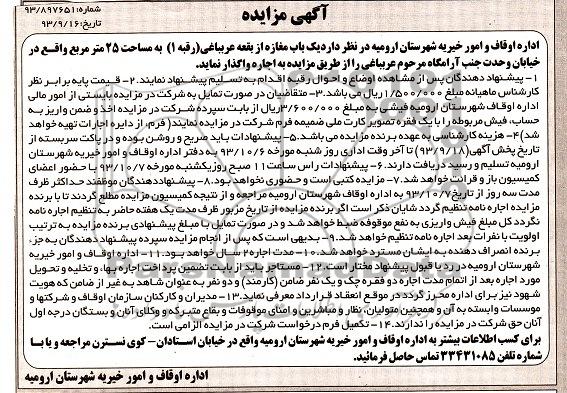 آگهی مزایده
شماره: ۹۳/۸۹۷۶۵۱
تاریخ: ۹۳/۹/۱۶
اداره اوقاف و امور خیریه شهرستان ارومیه در نظر دارد یک باب مغازه از بقعه عربباغی (رقبه ۱) به مساحت ۲۵ متر مربع واقع در
خیابان وحدت جنب آرامگاه مرحوم عربباغی را از طریق مزایده به اجاره واگذار نماید.
۱- پیشنهاد دهندگان پس از مشاهده اوضاع و احوال رقبه اقدام به تسلیم پیشنهاد نمایند. ۲- قیمت پایه برابر نظر
کارشناس ماهیانه مبلغ ۱/۵۰۰/۰۰۰ ریال می باشد. ۳- متقاضیان در صورت تمایل به شرکت در مزایده بایستی از امور مالی
اداره اوقاف شهرستان ارومیه فیشی به مبلغ ۳/۶۰۰/۰۰۰ ریال از بابت سپرده شرکت در مزایده اخذ و ضمن واریز به
حساب، فیش مربوطه را با یک فقره تصویر کارت ملی ضمیمه فرم شرکت در مزایده نمایند (فرم از دایره اجارات تهیه خواهد
شد) ۴- هزینه کارشناسی به عهده برنده مزایده می باشد. ۵- پیشنهادات باید صریح و روشن بوده و در پاکت سربسته از
تاریخ پخش آگهی (۹۳/۹/۱۸) تا آخر وقت اداری روز شنبه مورخه ۹۳/۱۰/۶ به دفتر اداره اوقاف و امور خیریه شهرستان
ارومیه تسلیم و رسید دریافت دارند. ۶- پیشنهادات راس ساعت ۱۱ صبح روز یکشنبه مورخه ۹۳/۱۰/۷ با حضور اعضای
کمیسیون باز و قرائت خواهد شد. ۷- مزایده کتبی است و حضوری نخواهد بود. ۸- پیشنهاد دهندگان موظفند حداکثر ظرف
مدت سه روز از تاریخ ۹۳/۱۰/۷ به اداره اوقاف شهرستان ارومیه مراجعه و از نتیجه کمیسیون مزایده مطلع گردند تا با برنده
مزایده اجاره نامه تنظیم گردد شایان ذکر است اگر برنده مزایده از تاریخ مزبور ظرف مدت یک هفته حاضر به تنظیم اجاره نامه
نگردد کل مبلغ فیش واریزی به نفع موقوفه ضبط خواهد شد و در صورت تمایل با مبلغ پیشنهادی برنده مزایده به ترتیب
اولویت با نفرات بعد اجاره نامه تنظیم خواهد شد. ۹- بدیهی است که پس از انجام مزایده سپرده پیشنهاد دهندگان به جز،
برنده انصراف دهنده به ایشان مسترد خواهد شد. ۱۰- مدت اجاره ۲ سال خواهد بود. ۱۱- اداره اوقاف و امور خیریه
شهرستان ارومیه در رد یا قبول پیشنهاد مختار است. ۱۲- مستاجر باید از بابت تضمین پرداخت اجاره بها، و تخلیه و تحویل
مورد اجاره بعد از اتمام مدت اجاره دو فقره چک و یک نفر ضامن (کارمند) و دو نفر به عنوان شاهد به غیر از ضامن که هویت
شهود نیز برای اداره محرز گردد در موقع انعقاد قرارداد معرفی نماید. ۱۳- مدیران و کارکنان سازمان اوقاف و شرکتها و
موسسات وابسته به آن و همچنین متولیان، نظار و مباشرین و امنای موقوفات و بقاع متبرکه و وکلای آنان و بستگان درجه اول
آنان حق شرکت در مزایده را ندارند. ۱۴- تکمیل فرم درخواست شرکت در مزایده الزامی است.
برای کسب اطلاعات بیشتر به اداره اوقاف و امور خیریه شهرستان ارومیه واقع در خیابان استادان - کوی نسترن مراجعه و یا با
شماره تلفن ۳۳۴۳۱۰۸۵ تماس حاصل فرمائید.
اداره اوقاف و امور خیریه شهرستان ارومیه